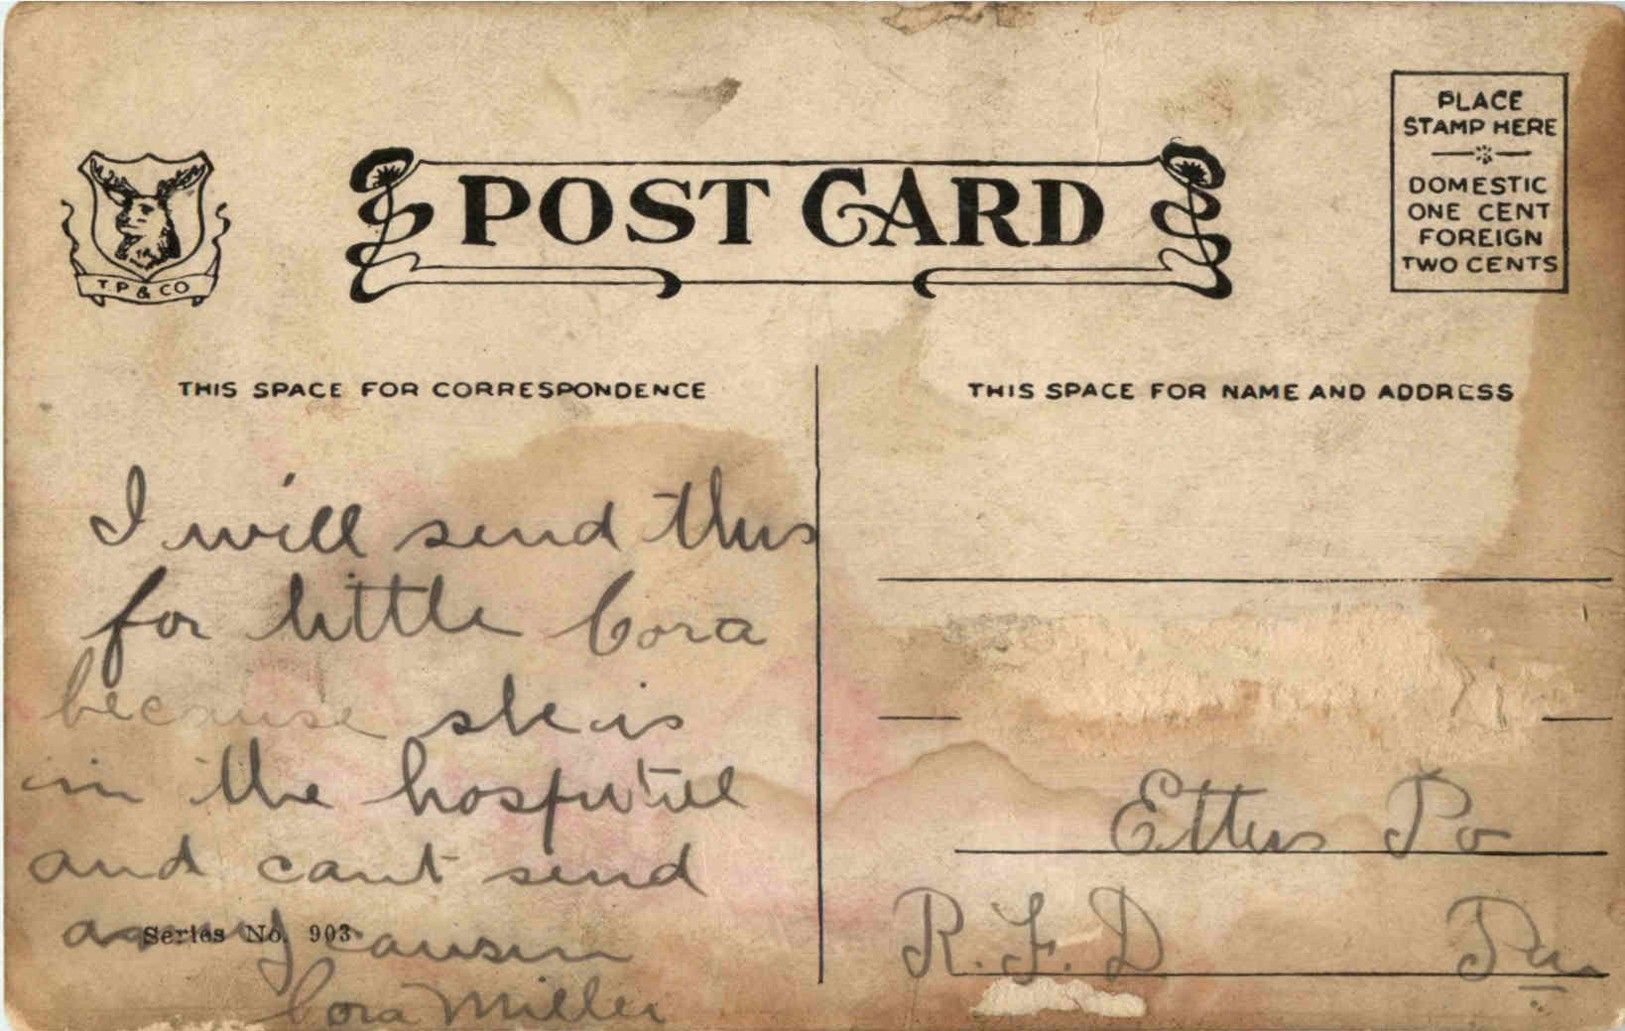 PLACE
STAMP HERE
DOMESTIC
ONE CENT
FOREIGN
TWO CENTS
POST CARD
T P & CO
THIS SPACE FOR CORRESPONDENCE
I will send this
for little Cora
because she is
in the hospitiell
and cant send
causin
Cora Miller
Series No. 903
THIS SPACE FOR NAME AND ADDRESS
Etters Po
R.F.D Pa